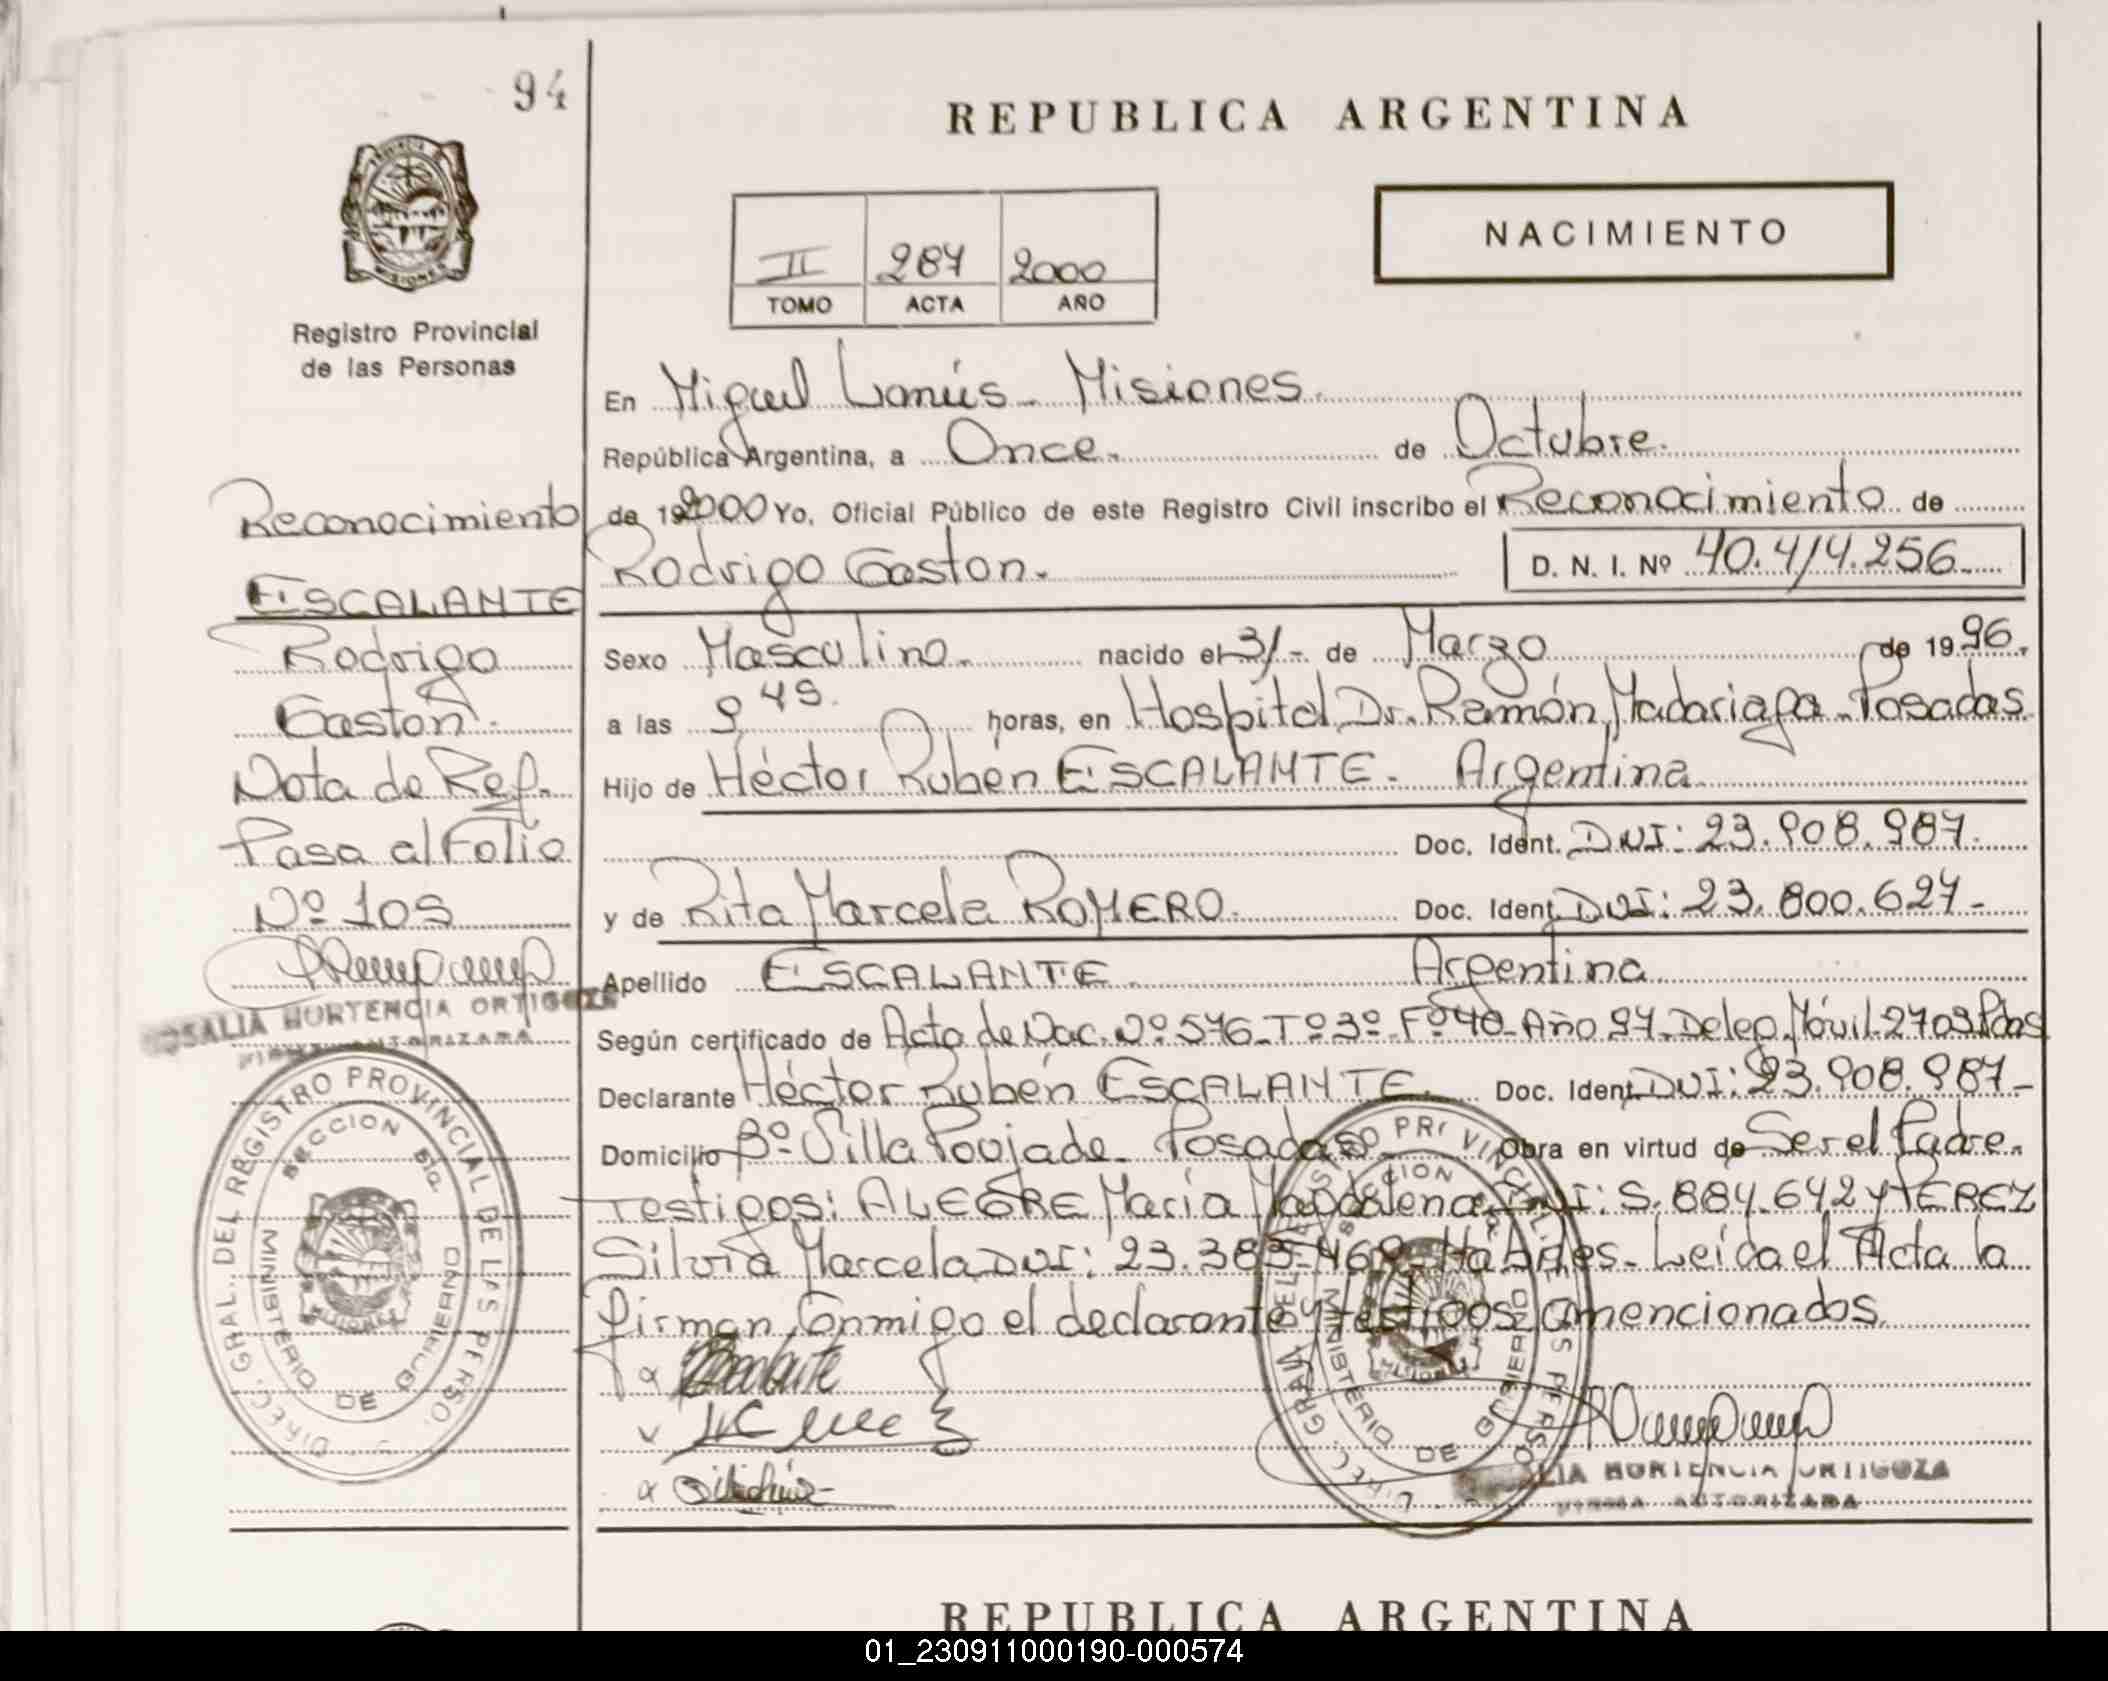 94
REPUBLICA ARGENTINA
NACIMIENTO
II 287 2000
TOMO ACTA AÑO
Registro Provincial
de las Personas
En Miguel Lanús - Misiones.
República Argentina, a Once. de Octubre.
de 192000 Yo, Oficial Público de este Registro Civil inscribo el Reconocimiento de
Rodrigo Gaston. D. N. I. Nº 40.414.256
Sexo Masculino. nacido el 31- de Marzo de 1996.
a las 9 45. horas, en Hospital Dr. Ramón Madariaga - Posadas
Hijo de Héctor Rubén ESCALANTE. Argentina
Doc. Ident. DNI: 23.908.987.
y de Rita Marcela ROMERO. Doc. Ident. DNI: 23.800.627-
Apellido ESCALANTE. Argentina
Según certificado de Acta de Nac. Nº 576 - Tº 3º - Fº 40 - Año 97 - Deleg. Móvil 2703 Pdas
Declarante Héctor Rubén ESCALANTE. Doc. Ident. DNI: 23.908.987-
Domicilio Bº Villa Poujade - Posadas - Obra en virtud de Ser el Padre.
Testigos: ALEGRE María Magdalena DNI: 5.884.642 y PEREZ
Silvia Marcela DNI: 23.383.469 - Hábiles - Leída el Acta la
firman Conmigo el declarante y testigos mencionados.
Reconocimiento
ESCALANTE
Rodrigo
Gaston.
Nota de Ref.
Pasa al Folio
Nº 105
ROSALIA HORTENCIA ORTIGOZA
FIRMA AUTORIZADA
DIREC. GRAL. DEL REGISTRO PROVINCIAL DE LAS PERSO.
SECCION DIG.
MINISTERIO DE GOBIERNO
MISIONES
DIREC. GRAL. DEL REGISTRO PROVINCIAL DE LAS PERSO.
MINISTERIO DE GOBIERNO
HORTENCIA ORTIGOZA
FIRMA AUTORIZADA
REPUBLICA ARGENTINA
01_230911000190-000574